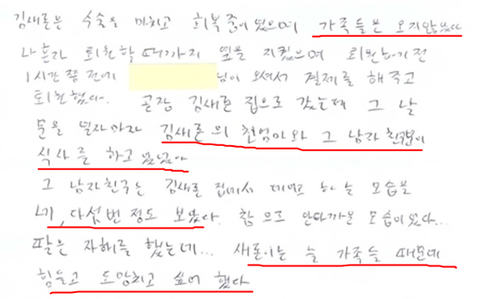 김새론은 수술을 마치고 회복 중이었으며 가족들은 오지않았다
나 혼자 퇴원할때까지 옆을 지켰으며 퇴원하기전
1시간쯤 전에 님이 오셔서 결제를 해주고
퇴원했다. 곧장 김새론 집으로 갔는데 그 날
문을 열자마자 김새론의 친엄마와 그 남자친구분이
식사를 하고 있었다
그 남자친구는 김새론 집에서 데이트 하는 모습을
네, 다섯번 정도 보았다. 참으로 안타까운 모습이었다...
팔은 자해를 했는데... 새론이는 늘 가족들 때문에
힘들고 도망치고 싶어 했다